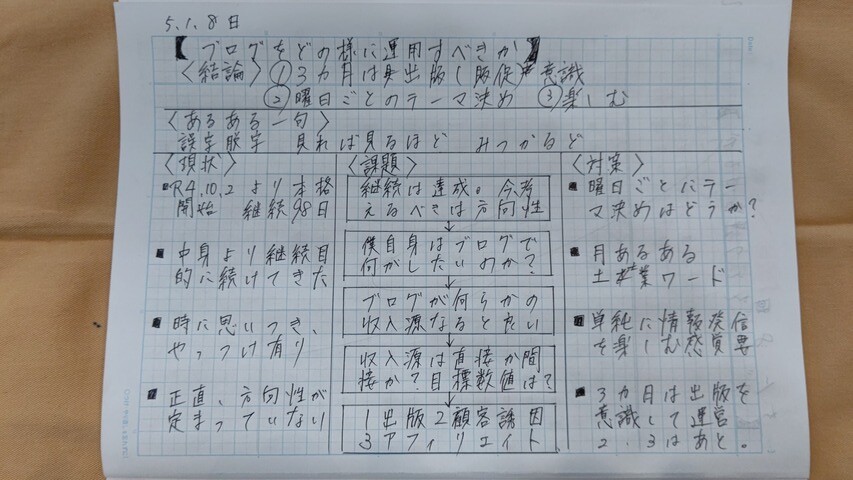 5.1.8日
【ブログをどの様に運用すべきか】
〈結論〉①3カ月は出版(販促)意識
②曜日ごとのテーマ決め ③楽しむ
〈あるある一句〉
誤字脱字 見れば見るほど みつかるど
〈現状〉
R4.10.2より本格
開始 継続98日
中身より継続目
的に続けてきた
時に思いつき、
やっつけ有り
正直、方向性が
定まっていない
〈課題〉
継続は達成。今考
えるべきは方向性
↓
僕自身はブログで
何がしたいのか?
↓
ブログが何らかの
収入源なると良い
↓
収入源は直接か間
接か?目標数値は?
↓
1出版2顧客誘因
3アフィリエイト
〈対策〉
曜日ごとにテー
マ決めはどうか?
月あるある
土業ワード
単純に情報発信
を楽しむ感覚要
3カ月は出版を
意識して運営
2.3はあと。